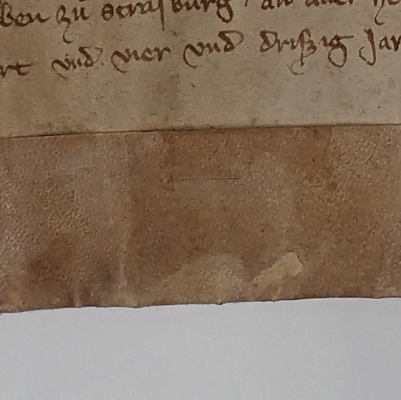 ben zů Strasburg an aller he
rt vnd vier vnd drissig Jar